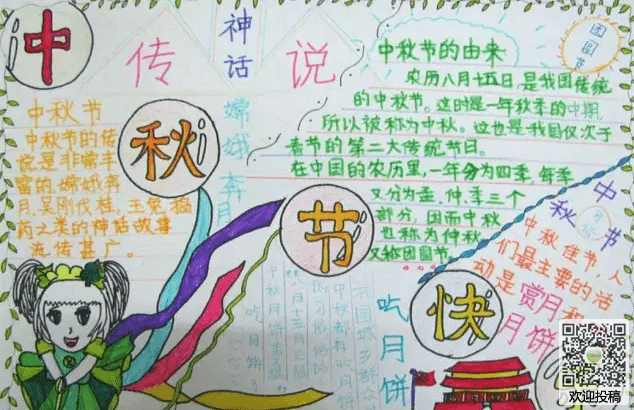 中
秋
节
快
传
神话
说
团圆节
嫦娥奔月
中秋节
中秋节的传
说是非常丰
富的,嫦娥奔
月,吴刚伐桂,玉兔捣
药之类的神话故事
流传甚广。
中秋节的由来
农历八月十五日,是我国传统
的中秋节。这时是一年秋季的中期,
所以被称为中秋。这也是我国仅次于
春节的第二大传统节日。
在中国的农历里,一年分为四季,每季
又分为孟、仲、季三个
部分,因而中秋
也称为仲秋
又称团圆节
中秋节
中秋佳节,人
们最主要的活
动是赏月和
月饼
吃月饼
我国城乡群众
中秋都有吃月
饼的习俗,俗话
八月十五月正圆
中秋月饼香
吃月饼
欢迎投稿